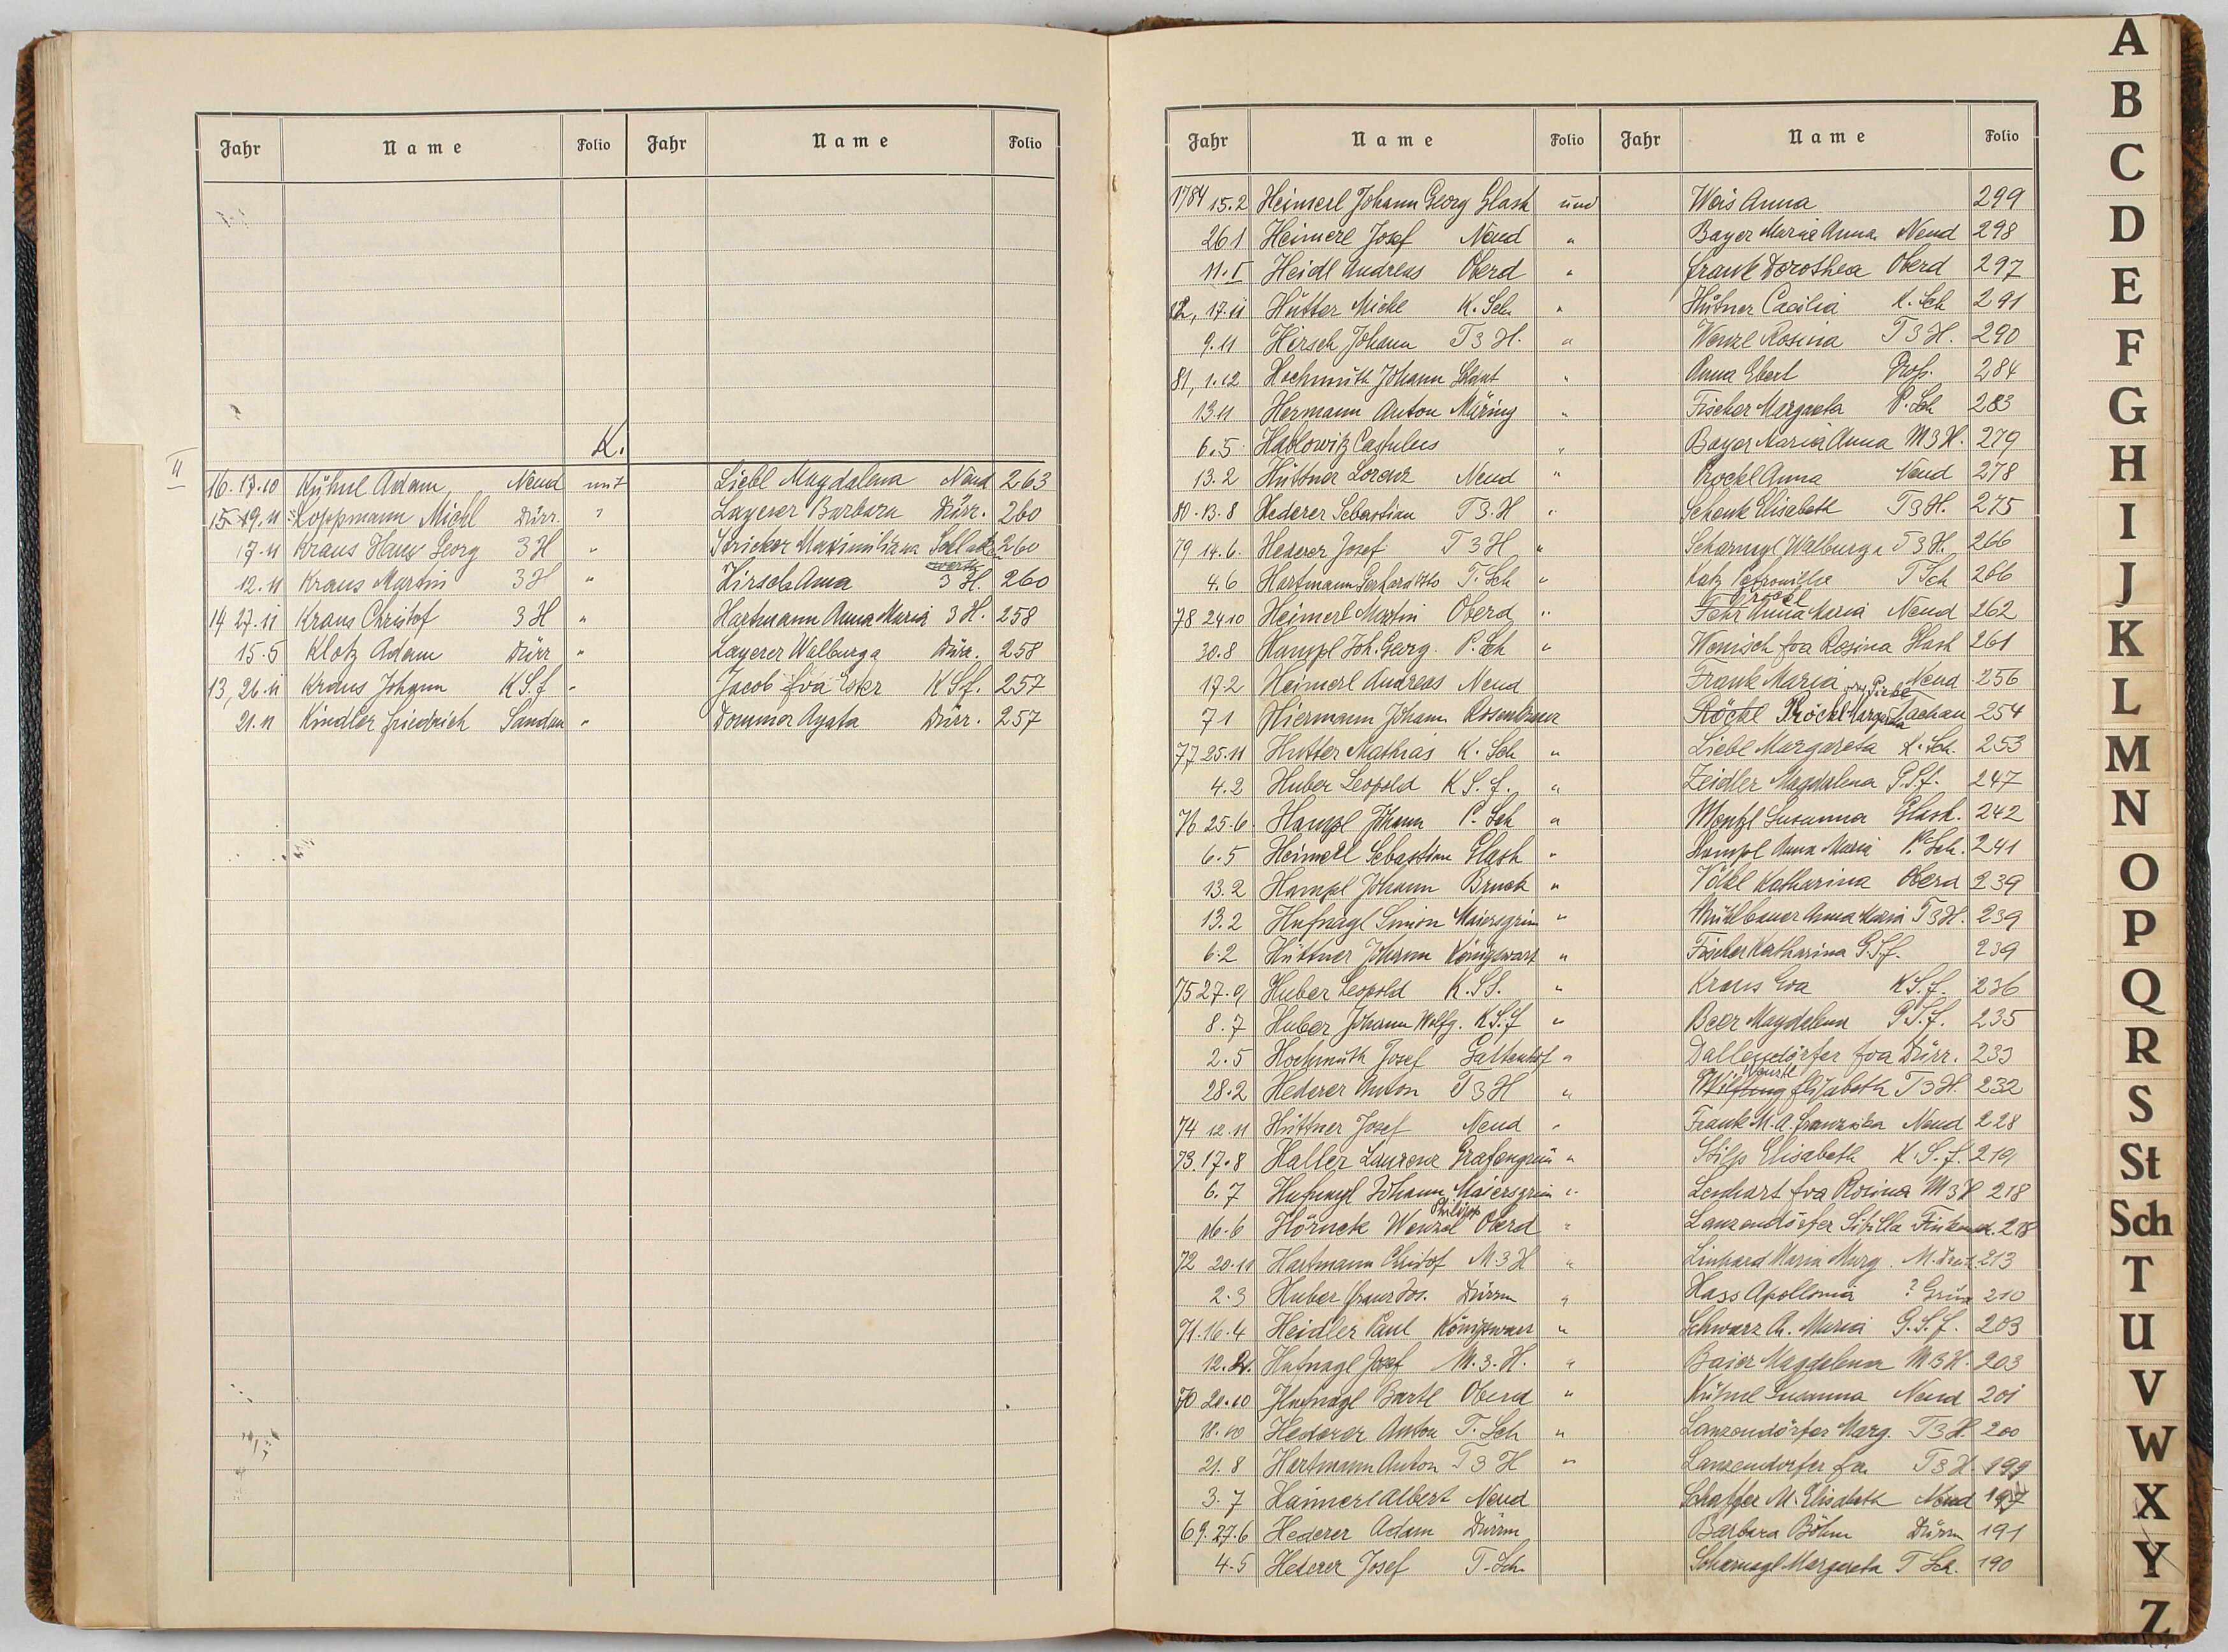 Jahr Name Folio Jahr Name Folio
K.
II
16. 17.10 Kühnl Adam Neud und Liebl Magdalena Neud 263
15 19.11 Koppmann Michl Dürr. " Layerer Barbara Dürr. 260
17.11 Kraus Hans Georg 3 H " Stricker Maximiliana 260
12.11 Kraus Martin 3 H " Hirsch Anna 3 H. 260
14 27.11 Kraus Christof 3 H " Hartmann Anna Maria 3 H. 258
15.5 Klotz Adam Dürr " Layerer Walburga Dürr. 258
13, 26.11 Kraus Johann K S.f " Jacob Eva Ester K Sf. 257
21.11 Kindler Friedrich Sandau " Dommer Agata Dürr. 257
Jahr Name Folio Jahr Name Folio
1784 15.2 Heimerl Johann Georg Glash und Weis Anna 299
26 1 Heimerl Josef Neud " Bayer Maria Anna Neud 298
11. I Heidl Andreas Oberd " Frank Dorothea Oberd 297
82, 17.11 Hütter Michl K. Sch " Hütner Cäcilia K. Sch 291
9.11 Hirsch Johann T 3 H. " Wenzl Rosina T 3 H. 290
81, 1.12 Hochmuth Johann " Anna Ebert 284
13.11 Hermann Anton Märing " Fischer Margareta P. Sch 283
6.5 Hablowitz Castulus " Bayer Maria Anna M 3 H. 279
13.2 Hüttner Lorenz Neud " Prockl Anna Neud 278
80. 13.8 Hederer Sebastian T 3. H " Schenk Elisabeth T 3 H. 275
79 14.6. Hederer Josef T 3 H " Scharnagl Walburga T 3 H. 266
4.6 Hartmann Gerhard Otto T. Sch " Katz Petronilla T Sch 266
78 24 10 Heimerl Martin Oberd " Fehr Anna Maria Neud 262
30.8 Hampl Joh. Georg. P. Sch " Wenisch Eva Rosina Glash 261
17.2 Heimerl Andreas Neud Frank Maria Neud 256
7 1 Hiermann Johann Röckl Pröckl Margareta Tachau 254
77 25.11 Hutter Mathias K. Sch " Liebl Margareta K. Sch. 253
4.2 Huber Leopold K S. f. " Zeidler Magdalena G.S.f. 247
76 25.6. Hampl Johann P. Sch " Mentzl Susanna Glash. 242
6.5 Heimerl Sebastian Glash " Hampl Anna Maria P. Sch. 241
13.2 Hampl Johann Bruck " Völkl Katharina Oberd 239
13.2 Hufnagl Simon Maiersgrün " Mühlbauer Anna Maria T 3 H. 239
6.2 Hüttner Johann Königswart " Fischer Katharina G.S.f. 239
75 27.9 Huber Leopold K. S S. " Kraus Eva K S. f. 236
8.7 Huber Johann Wolfg. K S. f " Beer Magdalena G S. f. 235
2.5 Hochmuth Josef Gattenhof " Dallendörfer Eva Dürr. 233
28.2 Hederer Anton T 3 H " Elisabeth T 3 H. 232
74 12.11 Hüttner Josef Neud " Frank M. A. Franziska Neud 228
73. 17.8 Haller Laurenz Grafengrün " Stilp Elisabeth K. S. f. 219
6.7 Hufnagl Johann Maiersgrün " Lenhart Eva Rosina M 3 H 218
Philipp
16.6 Hörnek Wenzel Oberd " Lanzendörfer Sibilla 218
72 20.11 Hartmann Christof M 3 H " Linhard Maria Marg. 213
2.3 Huber Franz Jos. Dürrm " Hass Apollonia ? Grün 210
71. 16.4 Heidler Paul Königswart " Schwarz A. Maria G. S. f. 203
12.2. Hufnagl Josef M. 3. H. " Baier Magdalena M 3 H. 203
70 20.10 Hufnagl Bartl Oberd " Kühnl Susanna Neud 201
18.10 Hederer Anton T. Sch " Lanzendörfer Marg. T 3 H. 200
21.8 Hartmann Anton T 3 H " Lanzendörfer Eva T 3 H. 199
3.7 Haimerl Albert Neud Schaffer M. Elisabeth Neud 197
69. 27.6 Hederer Adam Dürrm Barbara Böhm Dürrm 191
4.5 Hederer Josef T. Sch. Scharnagl Margareta T Sch. 190
A
B
C
D
E
F
G
H
I
J
K
L
M
N
O
P
Q
R
S
St
Sch
T
U
V
W
X
Y
Z